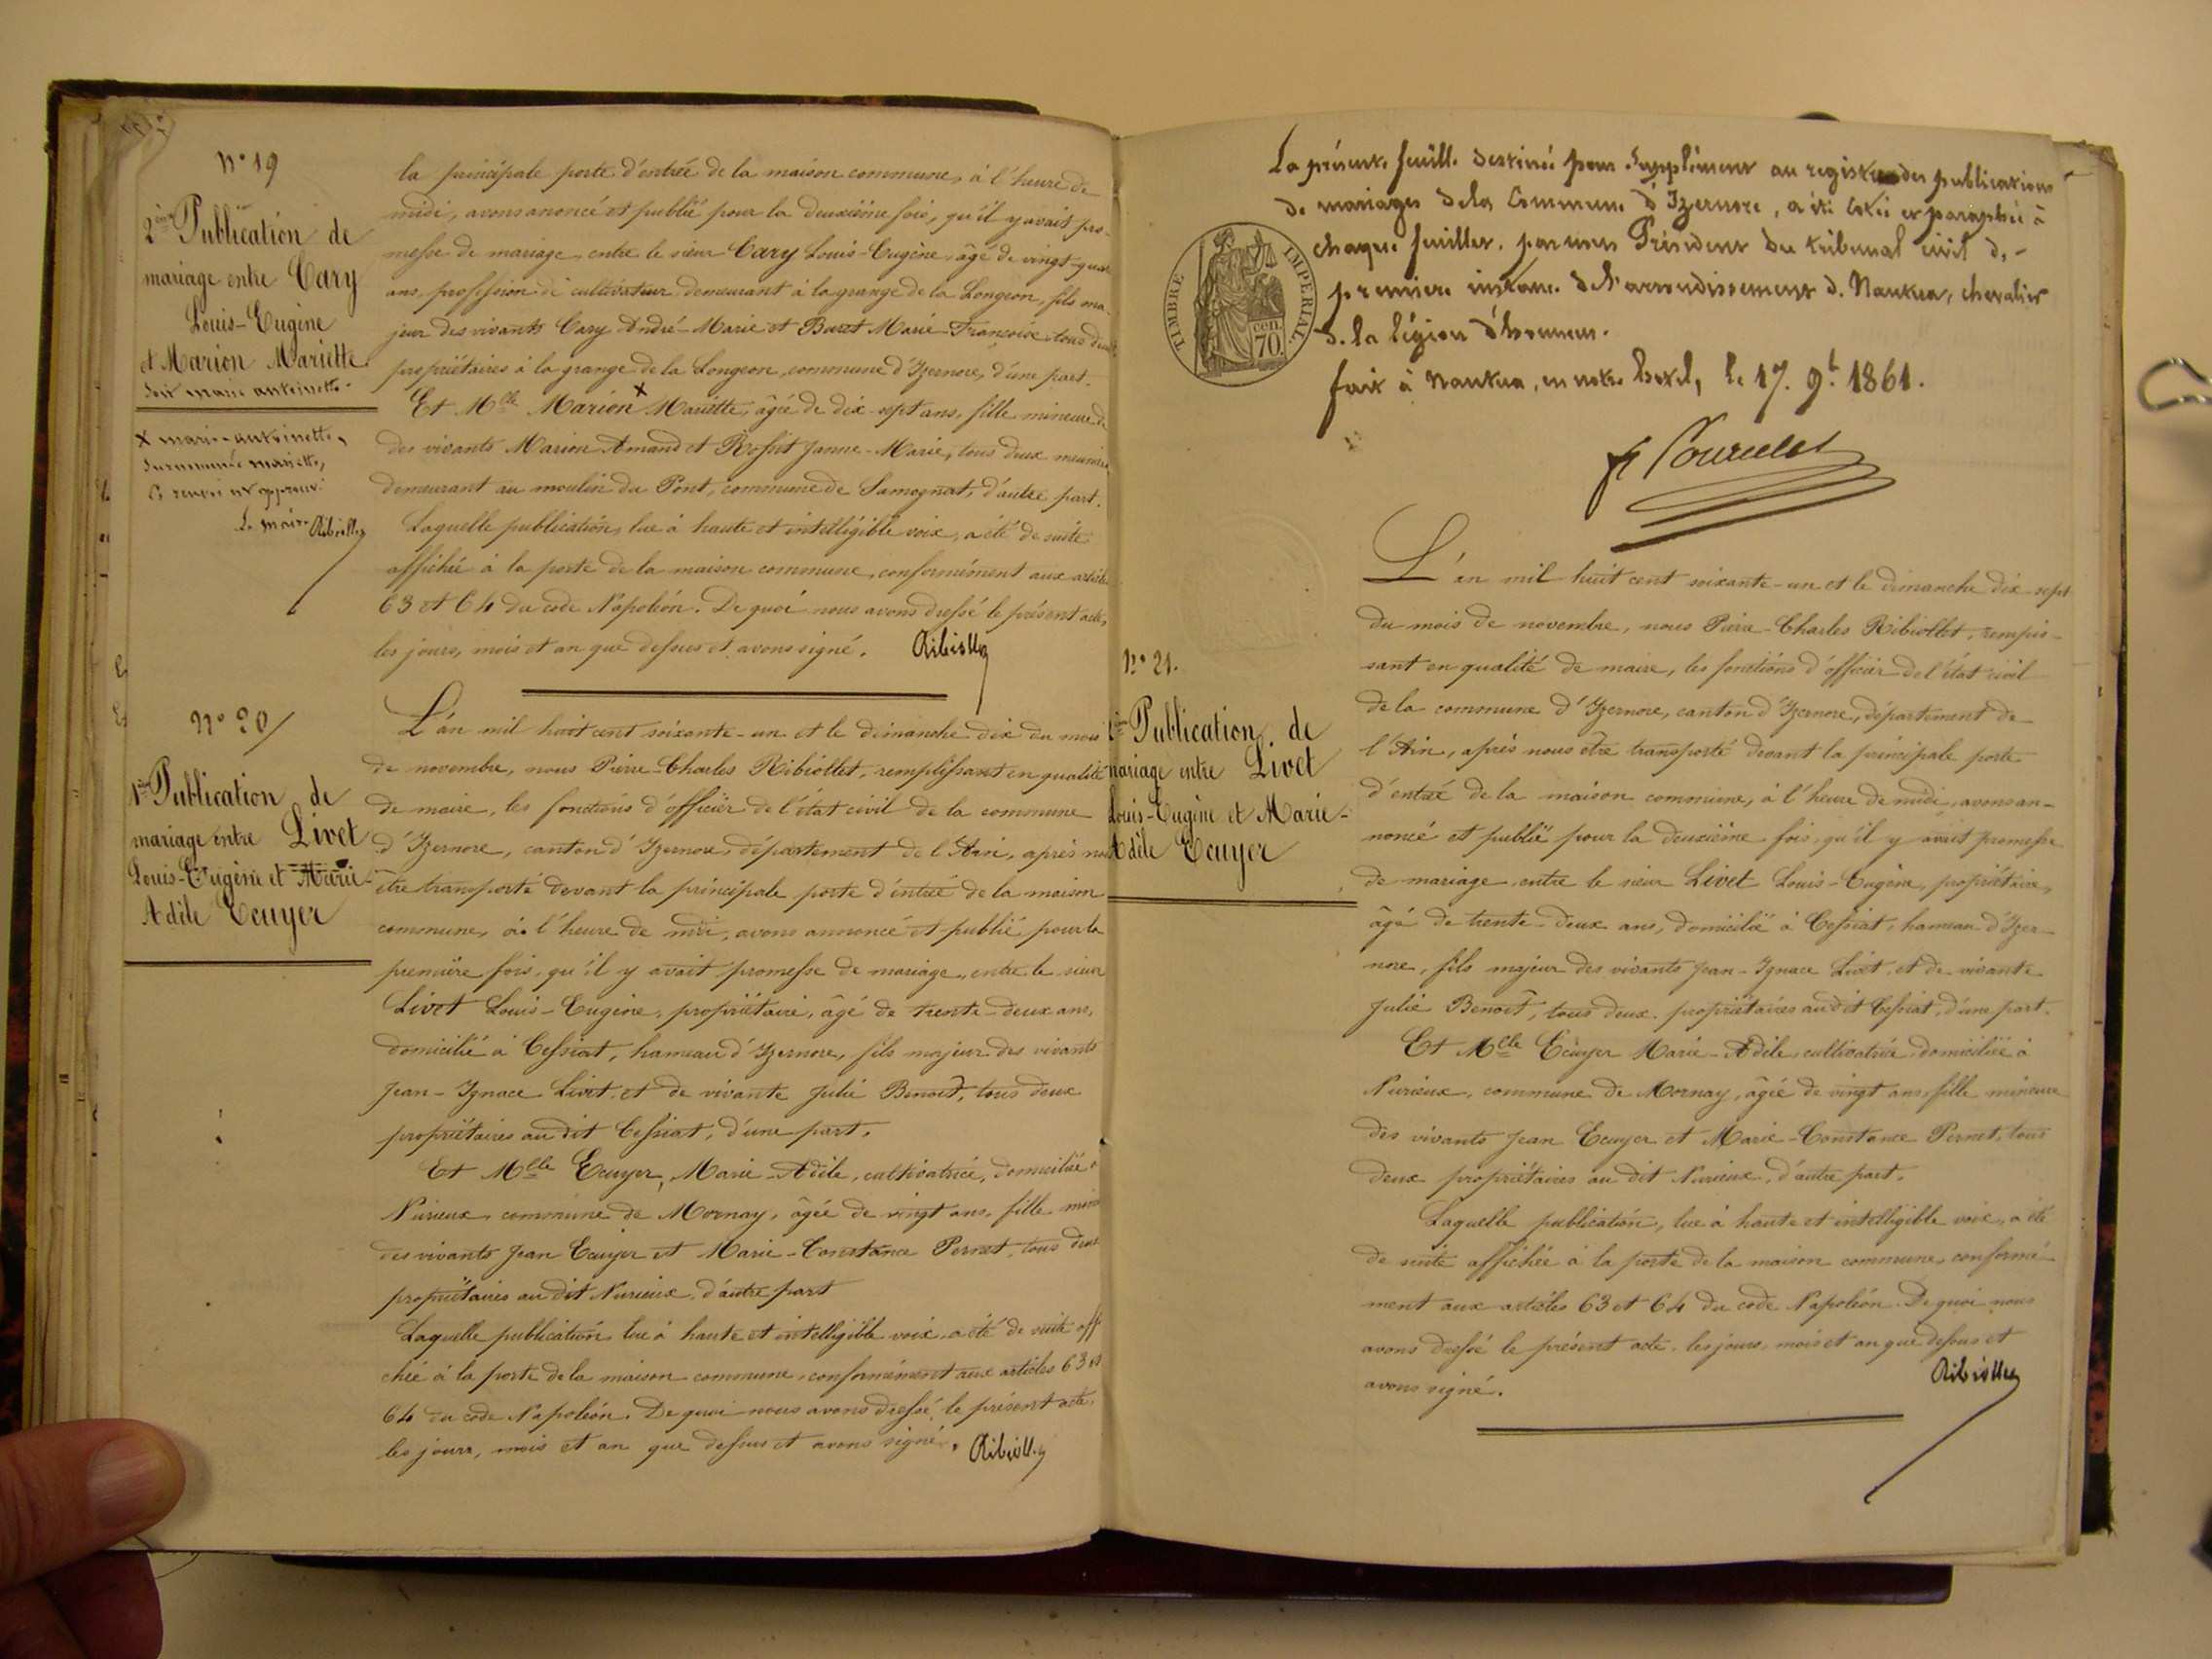 N° 19
2ème Publication de
mariage entre Cary
Louis-Eugène
et Marion Mariette
soit marie antoinette.
X marie-antoinette,
surnommée mariette,
ce renvoi est approuvé
Le maire Ribiollet
la principale porte d'entrée de la maison commune, à l'heure de
midi, avons anoncé et publié pour la deuxième fois, qu'il y avait pro-
messe de mariage, entre le sieur Cary Louis-Eugène, âgé de vingt-quat
ans, profession de cultivateur demeurant à la grange de la Longeon, fils ma-
jeur des vivants Cary André-Marie et Buret Marie-Françoise tous deux
propriétaires à la grange de la Longeon, commune d'Izernore, d'une part.
Et Mlle Marion X Mariette, âgée de dix-sept ans, fille mineure de
des vivants Marion Amand et Rosset Janne-Marie, tous deux meuniers
demeurant au moulin du Pont, commune de Samognat, d'autre part.
Laquelle publication, lue à haute et intelligible voix, a été de suite
affichée à la porte de la maison commune, conformément aux articles
63 et 64 du code Napoléon. De quoi nous avons dressé le présent acte,
les jours, mois et an que dessus et avons signé. Ribiollet
N° 20
1ère Publication de
mariage entre Livet
Louis-Eugène et Marie-
Adèle Ecuyer
L'an mil huit cent soixante-un et le dimanche dix du mois
de novembre, nous Pierre-Charles Ribiollet, remplissant en qualité
de maire, les fonctions d'officier de l'état civil de la commune
d'Izernore, canton d'Izernore, département de l'Ain, après nous
être transporté devant la principale porte d'entrée de la maison
commune, à l'heure de midi, avons annoncé et publié pour la
première fois, qu'il y avait promesse de mariage, entre le sieur
Livet Louis-Eugène, propriétaire, âgé de trente-deux ans,
domicilié à Cessiat, hameau d'Izernore, fils majeur des vivants
Jean-Ignace Livet et de vivante Julie Benoit, tous deux
propriétaires au dit Cessiat, d'une part.
Et Mlle Ecuyer, Marie-Adèle, cultivatrice, domiciliée à
Nurieux, commune de Mornay, âgée de vingt ans, fille mine
des vivants Jean Ecuyer et Marie-Constance Pernet, tous deux
propriétaires au dit Nurieux, d'autre part
Laquelle publication lue à haute et intelligible voix, a été de suite affi
chée à la porte de la maison commune, conformément aux articles 63 et
64 du code Napoléon. De quoi nous avons dressé le présent acte,
les jours, mois et an que dessus et avons signé. Ribiollet
La présente feuille destinée pour supplément au registre des publications
de mariages de la Commune d'Izernore, a été cotée et paraphée à
chaque feuillet, par nous Président du tribunal civil de
première instance de l'arrondissement de Nantua, chevalier
de la légion d'honneur.
fait à Nantua, en notre hotel, le 17. 9b 1861.
TIMBRE IMPERIAL.
cen.
70.
N° 21.
Publication de
mariage entre Livet
Louis-Eugène et Marie-
Adèle Ecuyer
L'an mil huit cent soixante-un et le dimanche dix-sept
du mois de novembre, nous Pierre-Charles Ribiollet, remplis-
sant en qualité de maire, les fonctions d'officier de l'état civil
de la commune d'Izernore, canton d'Izernore, département de
l'Ain, après nous être transporté devant la principale porte
d'entrée de la maison commune, à l'heure de midi, avons an-
noncé et publié pour la deuxième fois, qu'il y avait promesse
de mariage, entre le sieur Livet Louis-Eugène, propriétaire,
âgé de trente-deux ans, domicilié à Cessiat, hameau d'Izer-
nore, fils majeur des vivants Jean-Ignace Livet et de vivante
Julie Benoit, tous deux propriétaires au dit Cessiat, d'une part.
Et Mlle Ecuyer Marie-Adèle, cultivatrice, domiciliée à
Nurieux, commune de Mornay, âgée de vingt ans, fille mineure
des vivants Jean Ecuyer et Marie-Constance Pernet, tous
deux propriétaires au dit Nurieux, d'autre part.
Laquelle publication, lue à haute et intelligible voix, a été
de suite affichée à la porte de la maison commune, conformé-
ment aux articles 63 et 64 du code Napoléon. De quoi nous
avons dressé le présent acte, les jours, mois et an que dessus et
avons signé.
Ribiollet